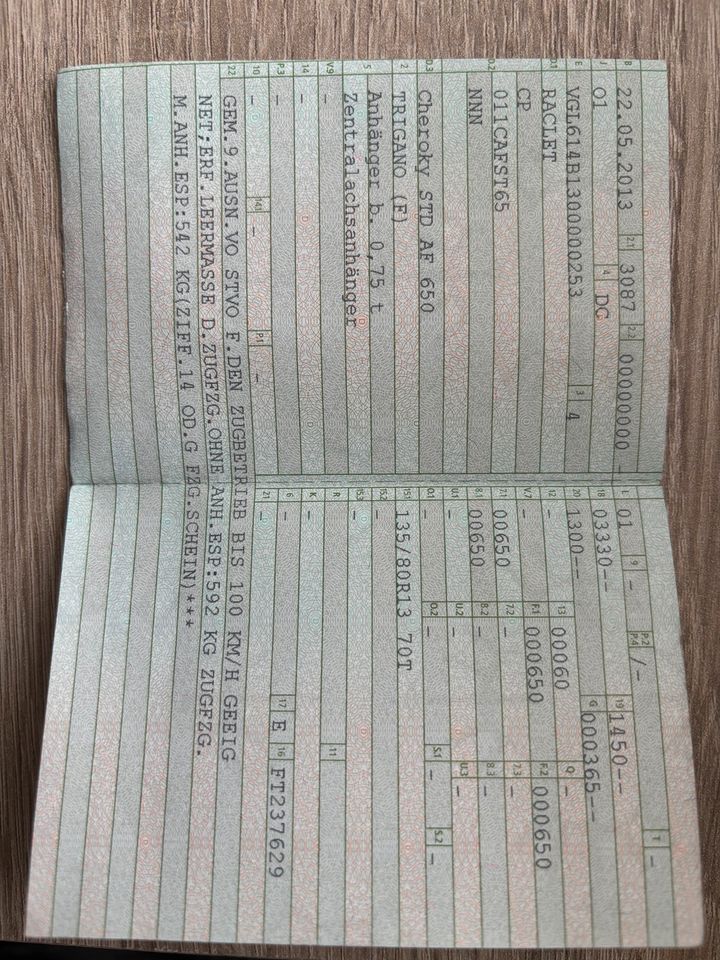 B 22.05.2013 2.1 3087 2.2 00000000 -
J O1 4 DG
E VGL614B1300000253 3 4
D.1 RACLET
CP
D.2 011CAFST65
NNN
D.3 Cheroky STD AF 650
2 TRIGANO (F)
5 Anhänger b. 0,75 t
Zentralachsanhänger
V.9 -
14 -
P.3 -
10 - 14.1 - P.1 -
L 01 9 - P.2 P.4 /- T -
18 03330-- 19 1450--
20 1300-- G 000365--
12 - 13 00060 Q -
V.7 - F.1 000650 F.2 000650
7.1 00650 7.2 - 7.3 -
8.1 00650 8.2 - 8.3 -
U.1 - U.2 - U.3 -
O.1 - O.2 - S.1 - S.2 -
15.1 135/80R13 70T
15.2 -
15.3 -
R - 11
K -
6 - 17 E 16 FT237629
21 -
22 GEM.9.AUSN.VO STVO F.DEN ZUGBETRIEB BIS 100 KM/H GEEIG
NET;ERF.LEERMASSE D.ZUGFZG.OHNE ANH.ESP:592 KG ZUGFZG.
M.ANH.ESP:542 KG(ZIFF.14 OD.G FZG.SCHEIN)***